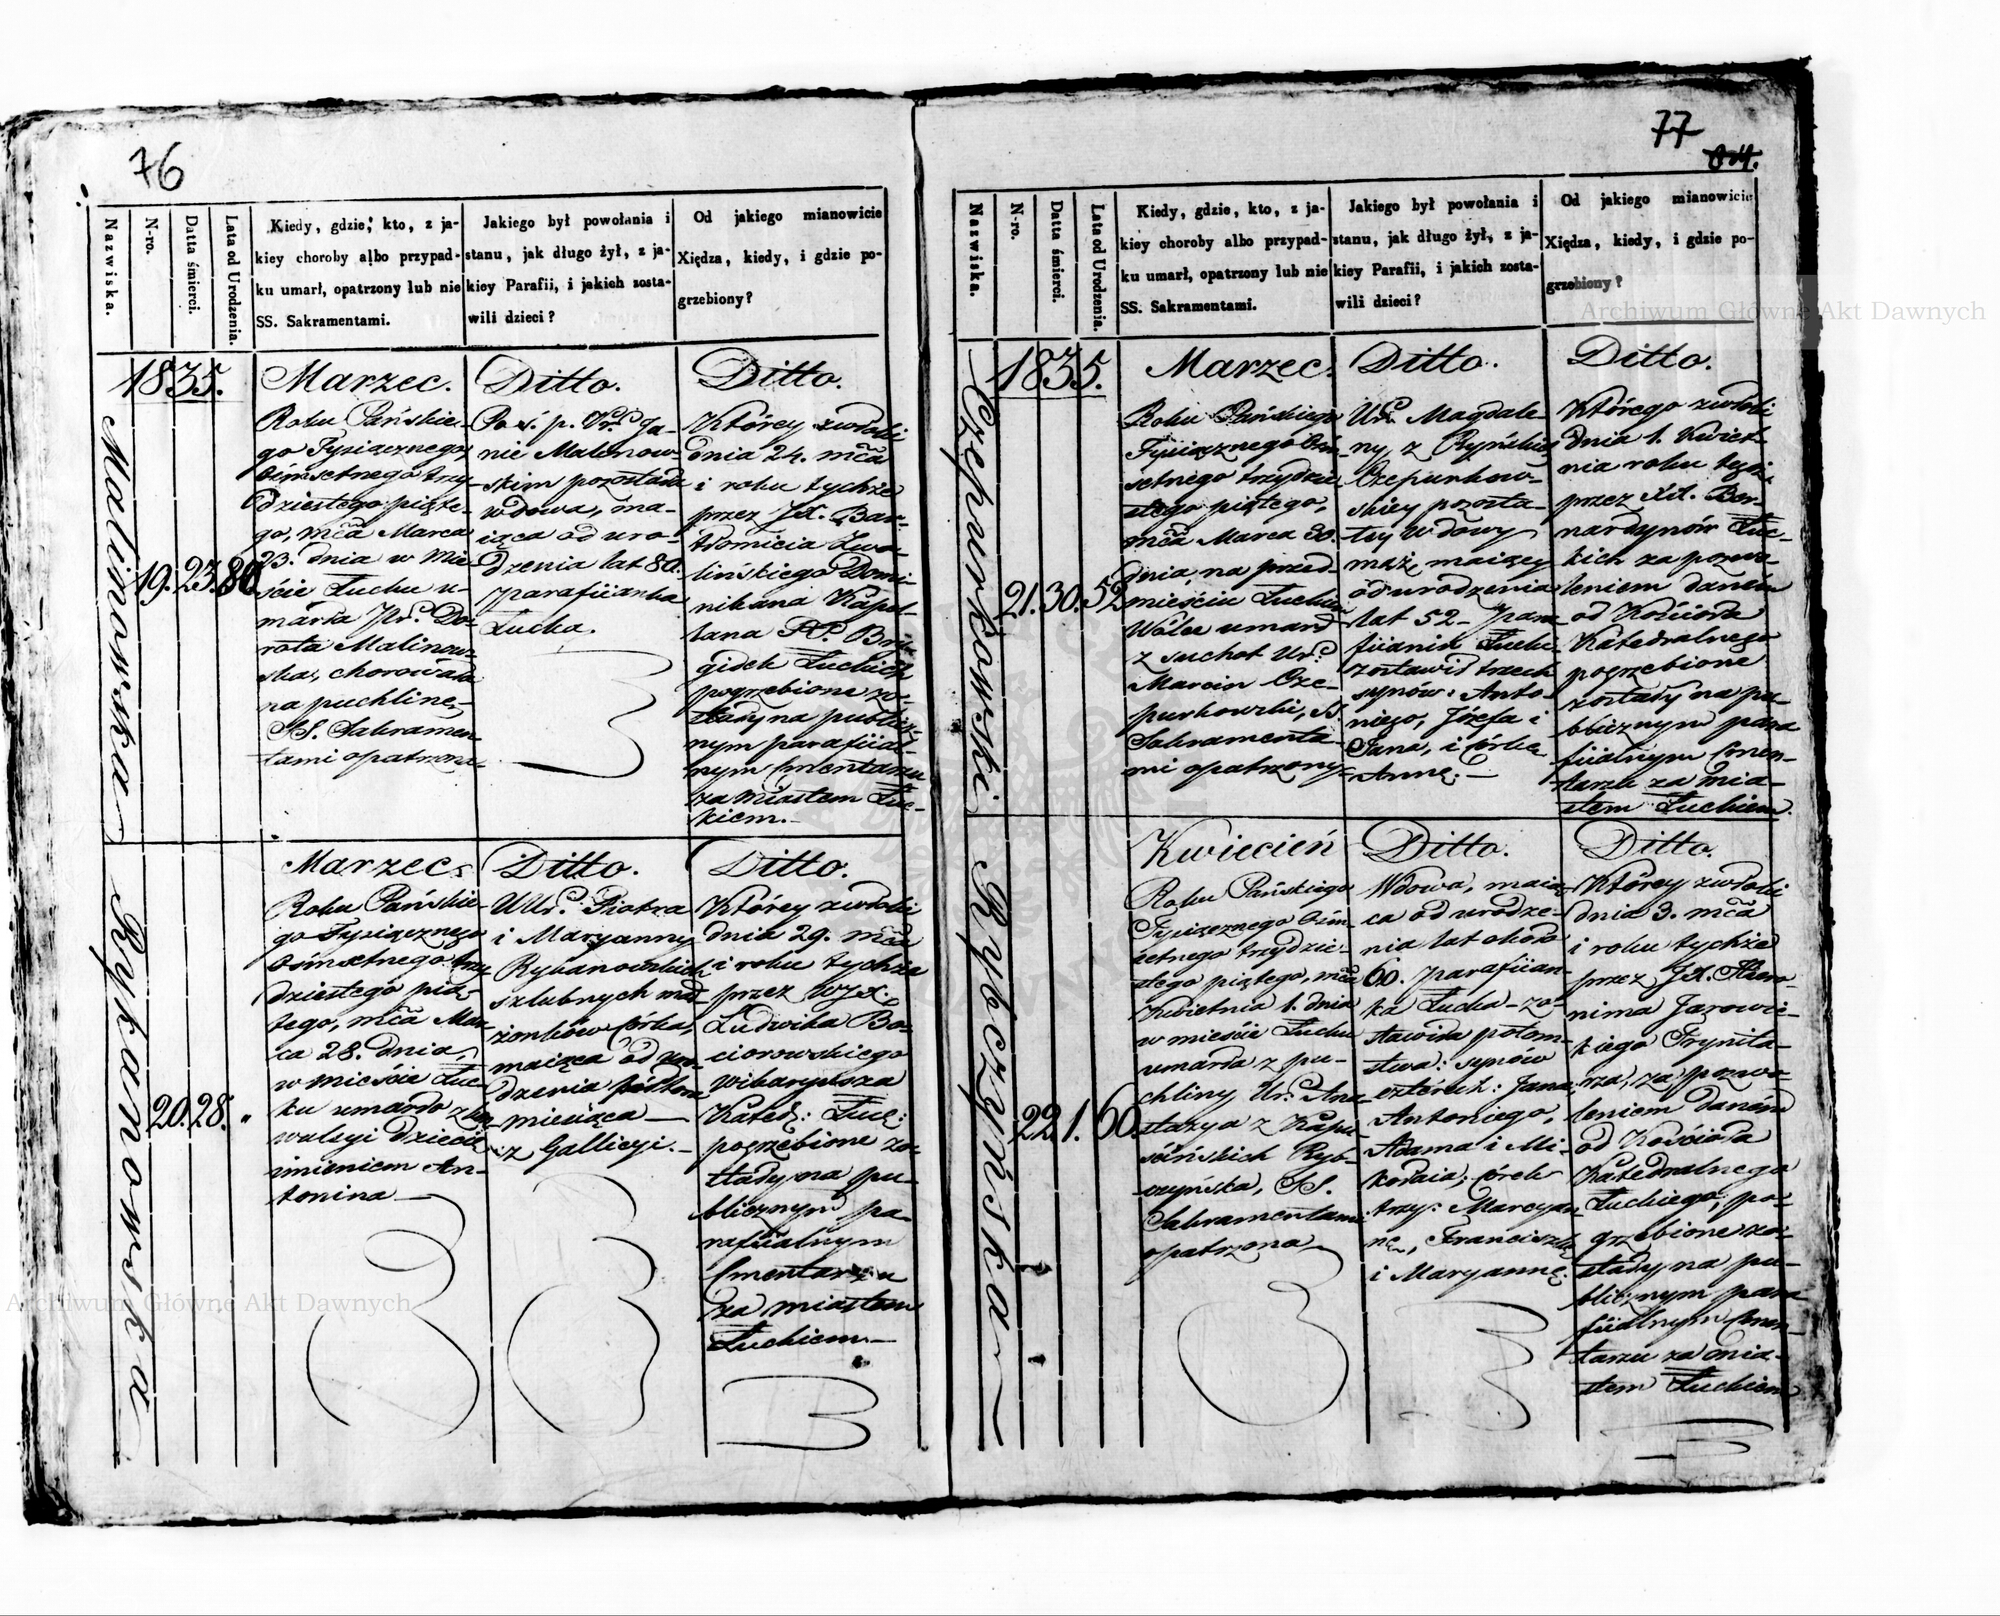 76
Nazwiska.
N-ro.
Datta śmierci.
Lata od Urodzenia.
Kiedy, gdzie, kto, z ja-
kiey choroby albo przypad-
ku umarł, opatrzony lub nie
SS. Sakramentami.
Jakiego był powołania i
stanu, jak długo żył, z ja-
kiey Parafii, i jakich zosta-
wili dzieci?
Od jakiego mianowicie
Xiędza, kiedy, i gdzie po-
grzebiony?
1835.
Malinowska
19.
23.
80
Marzec.
Roku Pańskie-
go Tysiącznego
Ośmsetnego trzy-
dziestego piąte-
go, mča Marca
23. dnia w Mie-
ście Łucku u-
marła Ur. Do-
rota Malinow-
ska, chorowała
na puchlinę,
SS. Sakramen-
tami opatrzona.
Ditto.
Po ś. p. Ur. Ja-
nie Malinow-
skim pozostała
wdowa, ma-
iąca od uro-
dzenia lat 80.
parafiianka
Łucka.
Ditto.
Którey zwłoki
dnia 24. mča
i roku tychże
przez JX. Bar-
tłomieia Zwo-
lińskiego Domi-
nikana Kapel-
lana PP. Bry-
gidek Łuckich
pogrzebione zo-
stały na publicz-
nym parafiial-
nym Cmentarzu
za miastem Łuc-
kiem.
Rykanowska
20.
28.
"
Marzec
Roku Pańskie-
go Tysiącznego
Ośmsetnego trzy-
dziestego pią-
tego, mča Mar-
ca 28. dnia,
w mieście Łuc-
ku umarło z kon-
wulsyi dziecie
imieniem An-
tonina
Ditto.
UUr. Piotra
i Maryanny
Rykanowskich
szlubnych mał-
żonków Córka,
maiąca od uro-
dzenia półtora
miesiąca
z Gallicyi.
Ditto.
Którey zwłoki
dnia 29. mča
i roku tychże
przez WJX.
Ludwika Bo-
ciorowskiego
Wikaryusza
Kated: Łuc:
pogrzebione zo-
stały na pu-
blicznym pa-
rafiialnym
Cmentarzu
za miastem
Łuckiem
77
Nazwiska.
N-ro.
Datta śmierci.
Lata od Urodzenia.
Kiedy, gdzie, kto, z ja-
kiey choroby albo przypad-
ku umarł, opatrzony lub nie
SS. Sakramentami.
Jakiego był powołania i
stanu, jak długo żył, z ja-
kiey Parafii, i jakich zosta-
wili dzieci?
Od jakiego mianowicie
Xiędza, kiedy, i gdzie po-
grzebiony?
Archiwum Główne Akt Dawnych
1835.
Czepurkowski
21.
30.
52
Marzec.
Roku Pańskiego
Tysiącznego Ośm-
setnego trzydzie-
stego piątego,
mča Marca 30.
dnia, na przed-
mieściu Łuckim
Wólce umarł
z suchot Ur.
Marcin Cze-
purkowski, SS.
Sakramenta-
mi opatrzony
Ditto.
Ur. Magdale-
ny, z
Czepurkow-
skiey pozosta-
łey Wdowy
mąż, maiący
od urodzenia
lat 52. Para-
fiianin Łucki
zostawił trzech
synów: Anto-
niego, Józefa i
Jana, i Córkę
Annę.
Ditto.
Którego zwłoki
dnia 1. Kwiet-
nia roku tegoż
przez XX. Ber-
nardynów Łuc-
kich za pozwo-
leniem daném
od Kościoła
Katedralnego
pogrzebione
zostały na pu-
blicznym para-
fiialnym Cmen-
tarzu za mia-
stem Łuckiem.
Rybczyńska
22.
1.
60.
Kwiecień
Roku Pańskiego
Tysiącznego Ośm-
setnego trzydzie-
stego piątego, mča
Kwietnia 1. dnia
w mieście Łucku
umarła z pu-
chliny Ur. Ana-
stazya z Kapu-
ścińskich Ryb-
czyńska, SS.
Sakramentami
opatrzona
Ditto.
Wdowa, maią-
ca od urodze-
nia lat około
60. Parafiian-
ka Łucka - zo-
stawiła potom-
stwa: synów
czterech: Jana,
Antoniego,
Adama i Mi-
kołaia; Córek
trzy: Marcyan-
nę, Franciszkę
i Maryannę.
Ditto.
Którey zwłoki
dnia 3. mča
i roku tychże
przez JX. Hiero-
nima Jarowic-
kiego Trynita-
rza, za pozwo-
leniem daném
od Kościoła
Katedralnego
Łuckiego, po-
grzebione zo-
stały na pu-
blicznym para-
fiialnym Cmen-
tarzu za mia-
stem Łuckiem
Archiwum Główne Akt Dawnych